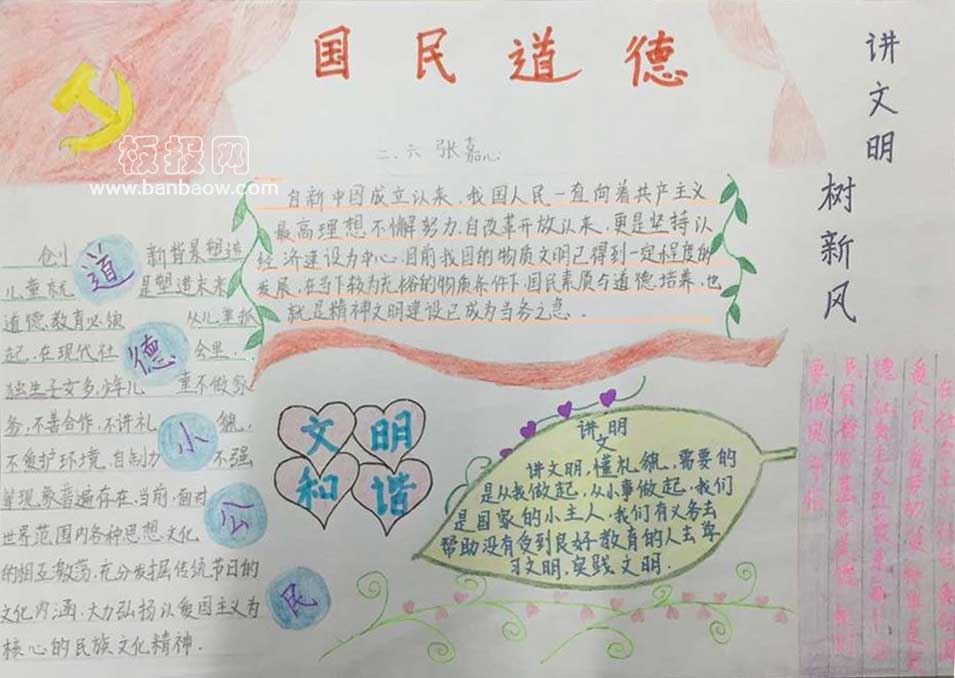 国民道德
讲文明
树新风
二、六 张嘉心
板报网
www.banbaow.com
自新中国成立以来，我国人民一直向着共产主义
最高理想不懈努力.自改革开放以来，更是坚持以
经济建设为中心.目前我国的物质文明已得到一定程度的
发展，在当下较为充裕的物质条件下，国民素质与道德培养，也
就是精神文明建设已成为当务之急.
道德小公民
创 新背景塑造
儿童就 是塑造未来
道德教育必须 从儿童抓
起，在现代社 会里.
独生子女多，少年儿 童不做家
务，不善合作，不讲礼 貌，
不爱护环境，自制力 不强
等现象普遍存在，当前，面对
世界范围内各种思想文化
的相互激荡，充分发掘传统节日的
文化内涵，大力弘扬以爱国主义为
核心的民族文化精神.
文明
和谐
讲文明
讲文明，懂礼貌，需要的
是从我做起，从小事做起，我们
是国家的小主人，我们有义务去
帮助没有受到良好教育的人去学
习文明，实践文明.